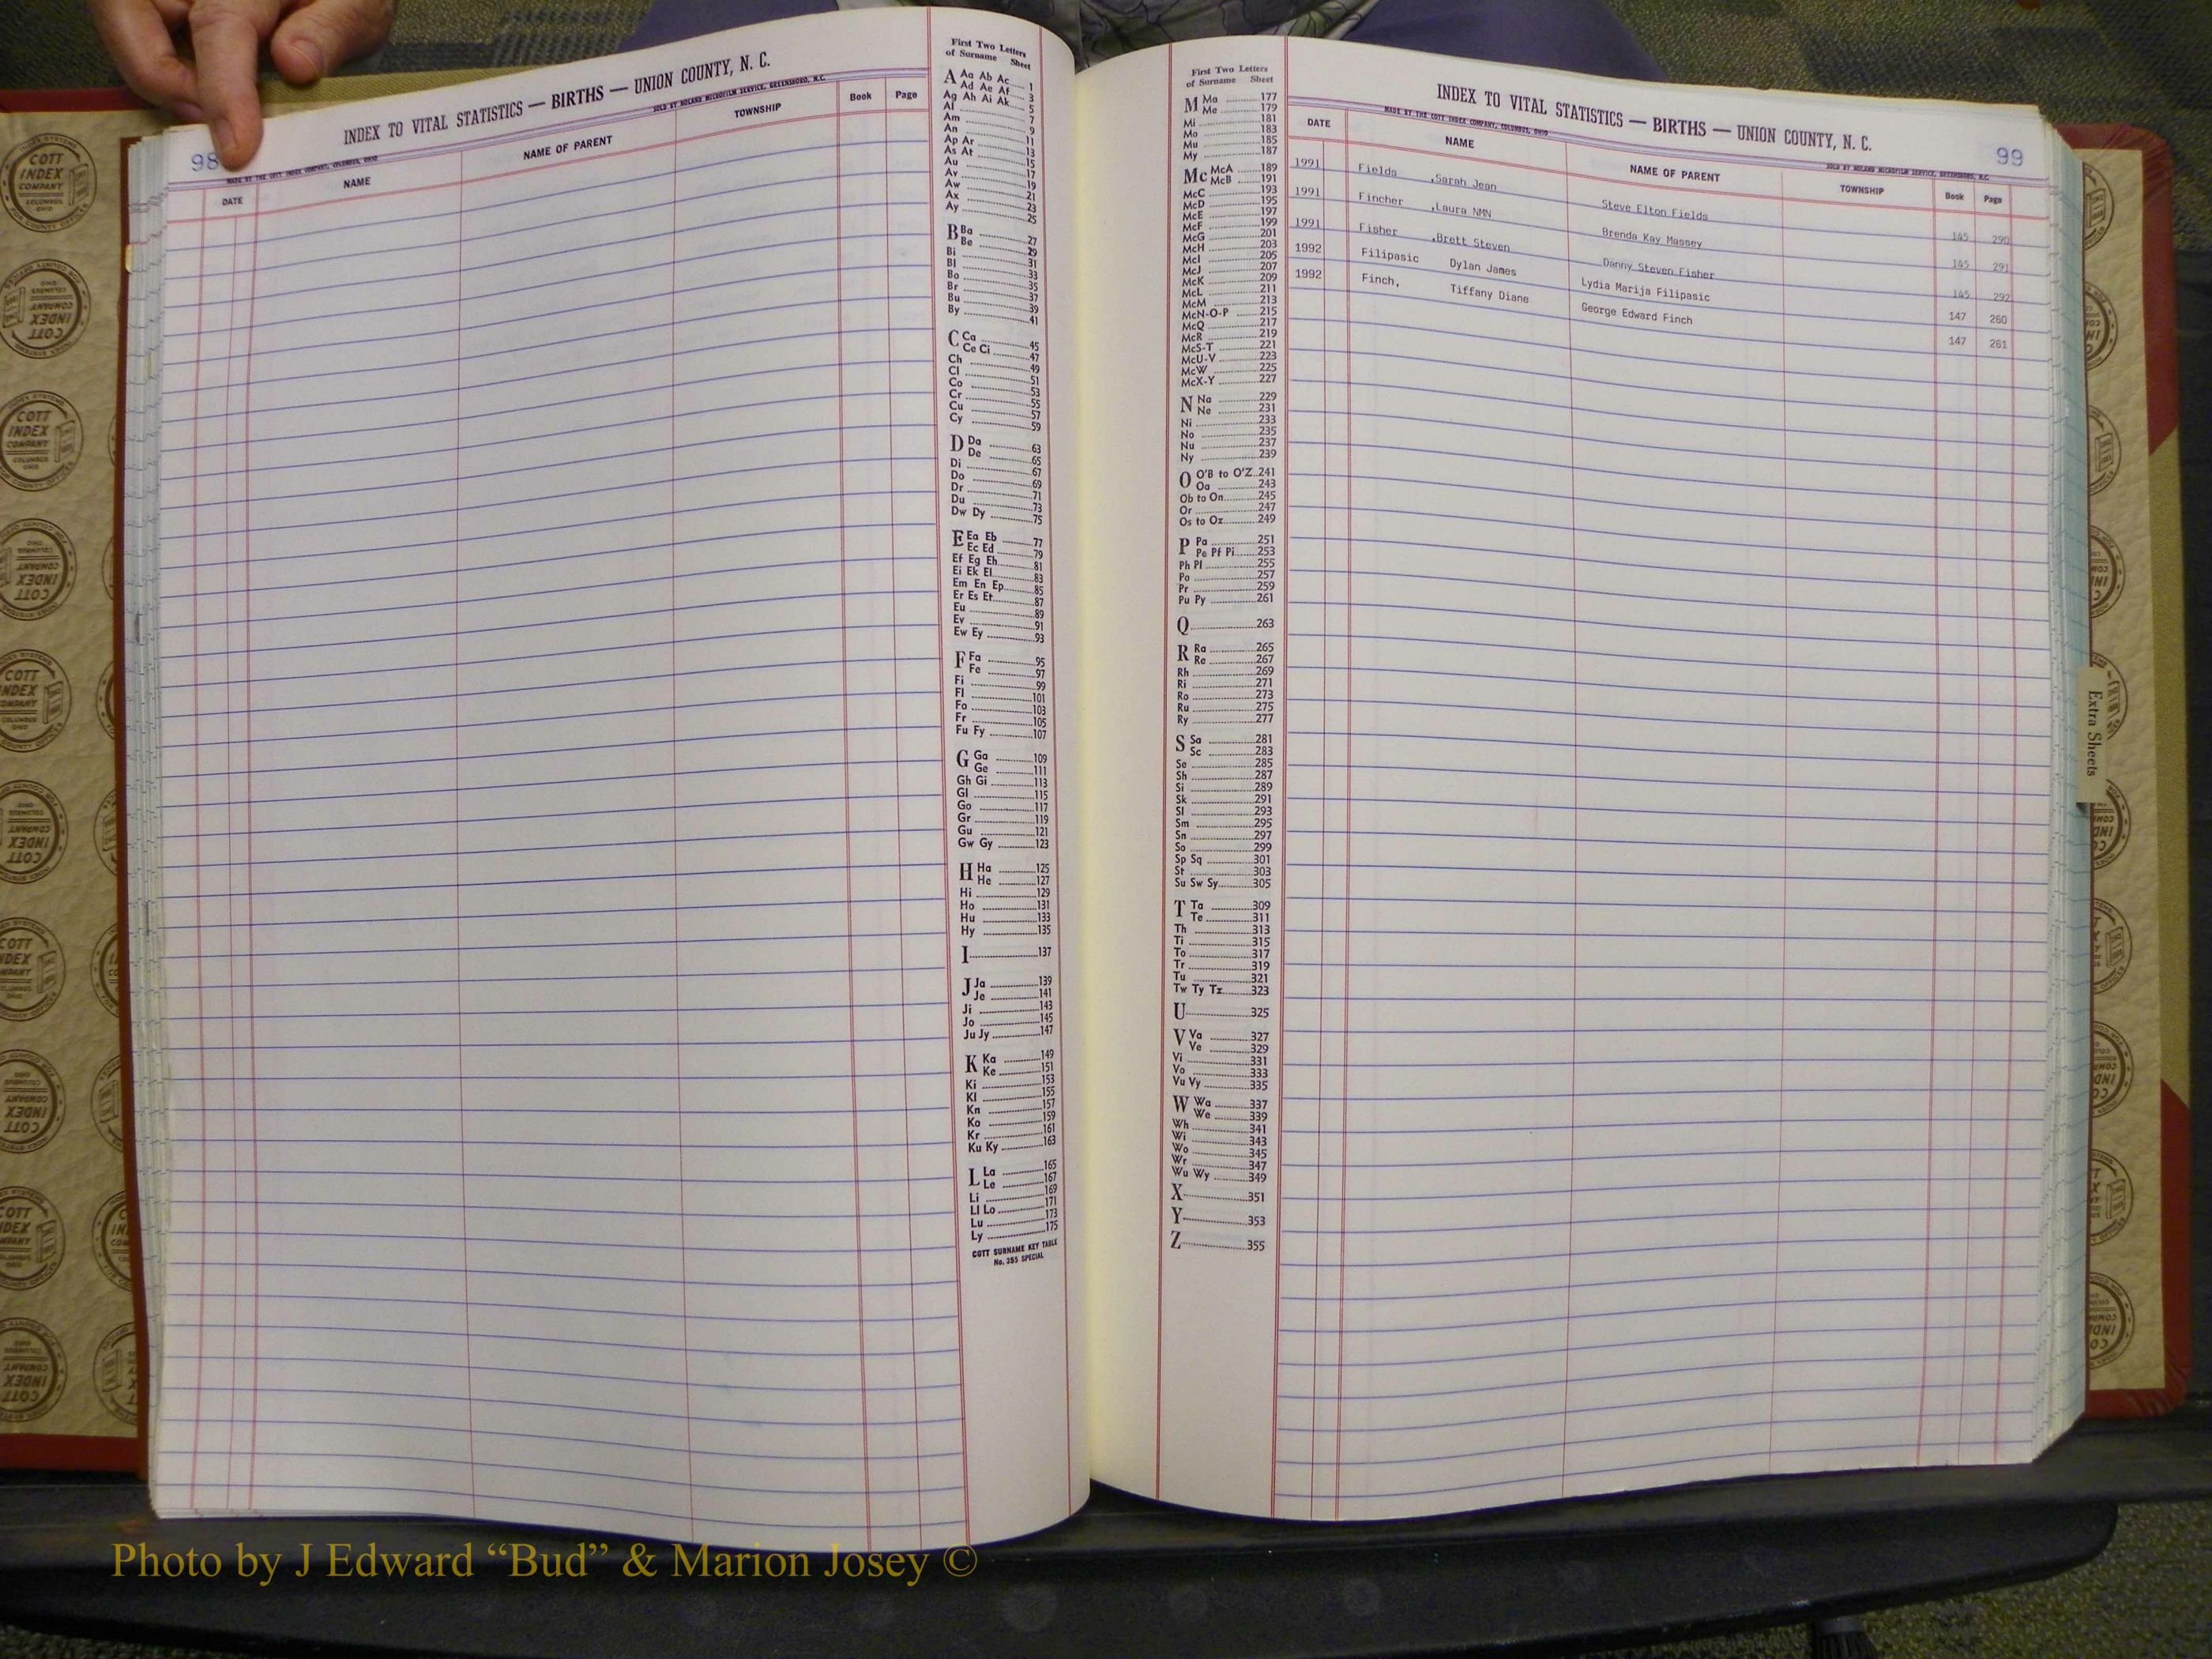 98
INDEX TO VITAL STATISTICS — BIRTHS — UNION COUNTY, N. C.
MADE BY THE COTT INDEX COMPANY, COLUMBUS, OHIO
SOLD BY NOLAND MICROFILM SERVICE, GREENSBORO, N.C.
DATE NAME NAME OF PARENT TOWNSHIP Book Page
First Two Letters
of Surname Sheet
A Aa Ab Ac 1
Ad Ae Af 3
Ag Ah Ai Ak 5
Al 7
Am 9
An 11
Ap Ar 13
As At 15
Au 17
Av 19
Aw 21
Ax 23
Ay 25
B Ba 27
Be 29
Bi 31
Bl 33
Bo 35
Br 37
Bu 39
By 41
C Ca 45
Ce Ci 47
Ch 49
Cl 51
Co 53
Cr 55
Cu 57
Cy 59
D Da 63
De 65
Di 67
Do 69
Dr 71
Du 73
Dw Dy 75
E Ea Eb 77
Ec Ed 79
Ef Eg Eh 81
Ei Ek El 83
Em En Ep 85
Er Es Et 87
Eu 89
Ev 91
Ew Ey 93
F Fa 95
Fe 97
Fi 99
Fl 101
Fo 103
Fr 105
Fu Fy 107
G Ga 109
Ge 111
Gh Gi 113
Gl 115
Go 117
Gr 119
Gu 121
Gw Gy 123
H Ha 125
He 127
Hi 129
Ho 131
Hu 133
Hy 135
I 137
J Ja 139
Je 141
Ji 143
Jo 145
Ju Jy 147
K Ka 149
Ke 151
Ki 153
Kl 155
Kn 157
Ko 159
Kr 161
Ku Ky 163
L La 165
Le 167
Li 169
Ll Lo 171
Lu 173
Ly 175
COTT SURNAME KEY TABLE
No. 255 SPECIAL
First Two Letters
of Surname Sheet
M Ma 177
Me 179
Mi 181
Mo 183
Mu 185
My 187
Mc McA 189
McB 191
McC 193
McD 195
McE 197
McF 199
McG 201
McH 203
McI 205
McJ 207
McK 209
McL 211
McM 213
McN-O-P 215
McQ 217
McR 219
McS-T 221
McU-V 223
McW 225
McX-Y 227
N Na 229
Ne 231
Ni 233
No 235
Nu 237
Ny 239
O O'B to O'Z 241
Oa 243
Ob to On 245
Or 247
Os to Oz 249
P Pa 251
Pe Pf Pi 253
Ph Pl 255
Po 257
Pr 259
Pu Py 261
Q 263
R Ra 265
Re 267
Rh 269
Ri 271
Ro 273
Ru 275
Ry 277
S Sa 281
Sc 283
Se 285
Sh 287
Si 289
Sk 291
Sl 293
Sm 295
Sn 297
So 299
Sp Sq 301
St 303
Su Sw Sy 305
T Ta 309
Te 311
Th 313
Ti 315
To 317
Tr 319
Tu 321
Tw Ty Tz 323
U 325
V Va 327
Ve 329
Vi 331
Vo 333
Vu Vy 335
W Wa 337
We 339
Wh 341
Wi 343
Wo 345
Wr 347
Wu Wy 349
X 351
Y 353
Z 355
INDEX TO VITAL STATISTICS — BIRTHS — UNION COUNTY, N. C.
99
MADE BY THE COTT INDEX COMPANY, COLUMBUS, OHIO
SOLD BY NOLAND MICROFILM SERVICE, GREENSBORO, N.C.
DATE NAME NAME OF PARENT TOWNSHIP Book Page
1991 Fields ,Sarah Jean Steve Elton Fields 145 290
1991 Fincher ,Laura NMN Brenda Kay Massey 145 291
1991 Fisher ,Brett Steven Danny Steven Fisher 145 292
1992 Filipasic Dylan James Lydia Marija Filipasic 147 260
1992 Finch, Tiffany Diane George Edward Finch 147 261
Extra Sheets
COTT
INDEX
COMPANY
COLUMBUS
OHIO
Photo by J Edward “Bud” & Marion Josey ©